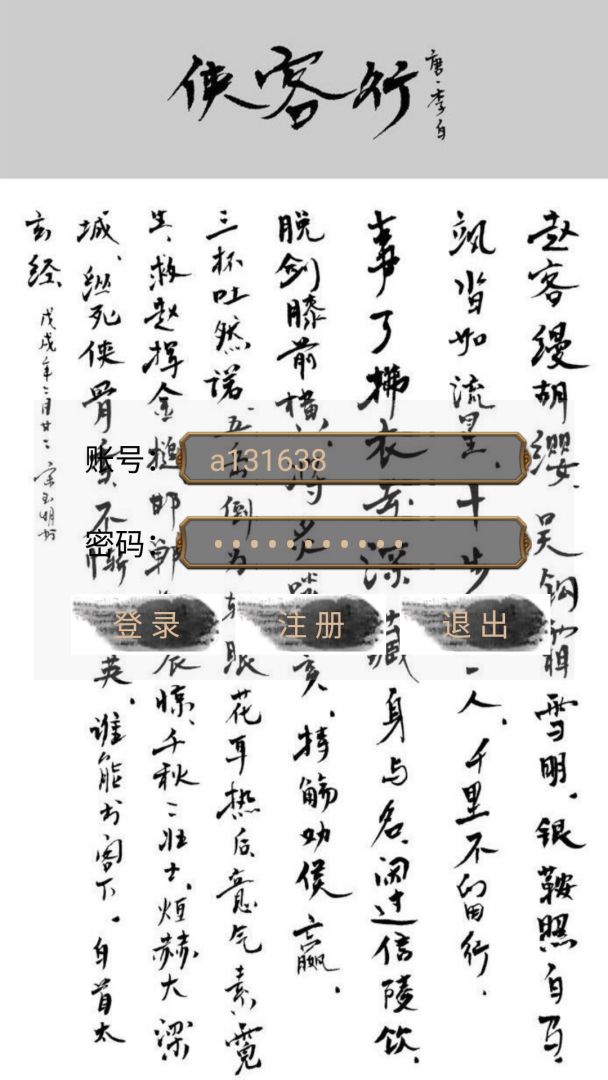 侠客行
唐·李白
赵客缦胡缨。吴钩霜雪明。银鞍照白马。
飒沓如流星。十步一人。千里不留行。
事了拂衣去深藏身与名。闲过信陵饮。
脱剑膝前横。将炙啖亥。持觞劝侯嬴。
三杯吐然诺。五岳倒为轻眼花耳热后意气素霓
生。救赵挥金槌邯郸震惊。千秋二壮士。烜赫大梁
城。纵死侠骨香不惭英。谁能书阁下。白首太
玄经。
戊戌年二月廿二
账号: a131638
密码: ············
登录 注册 退出